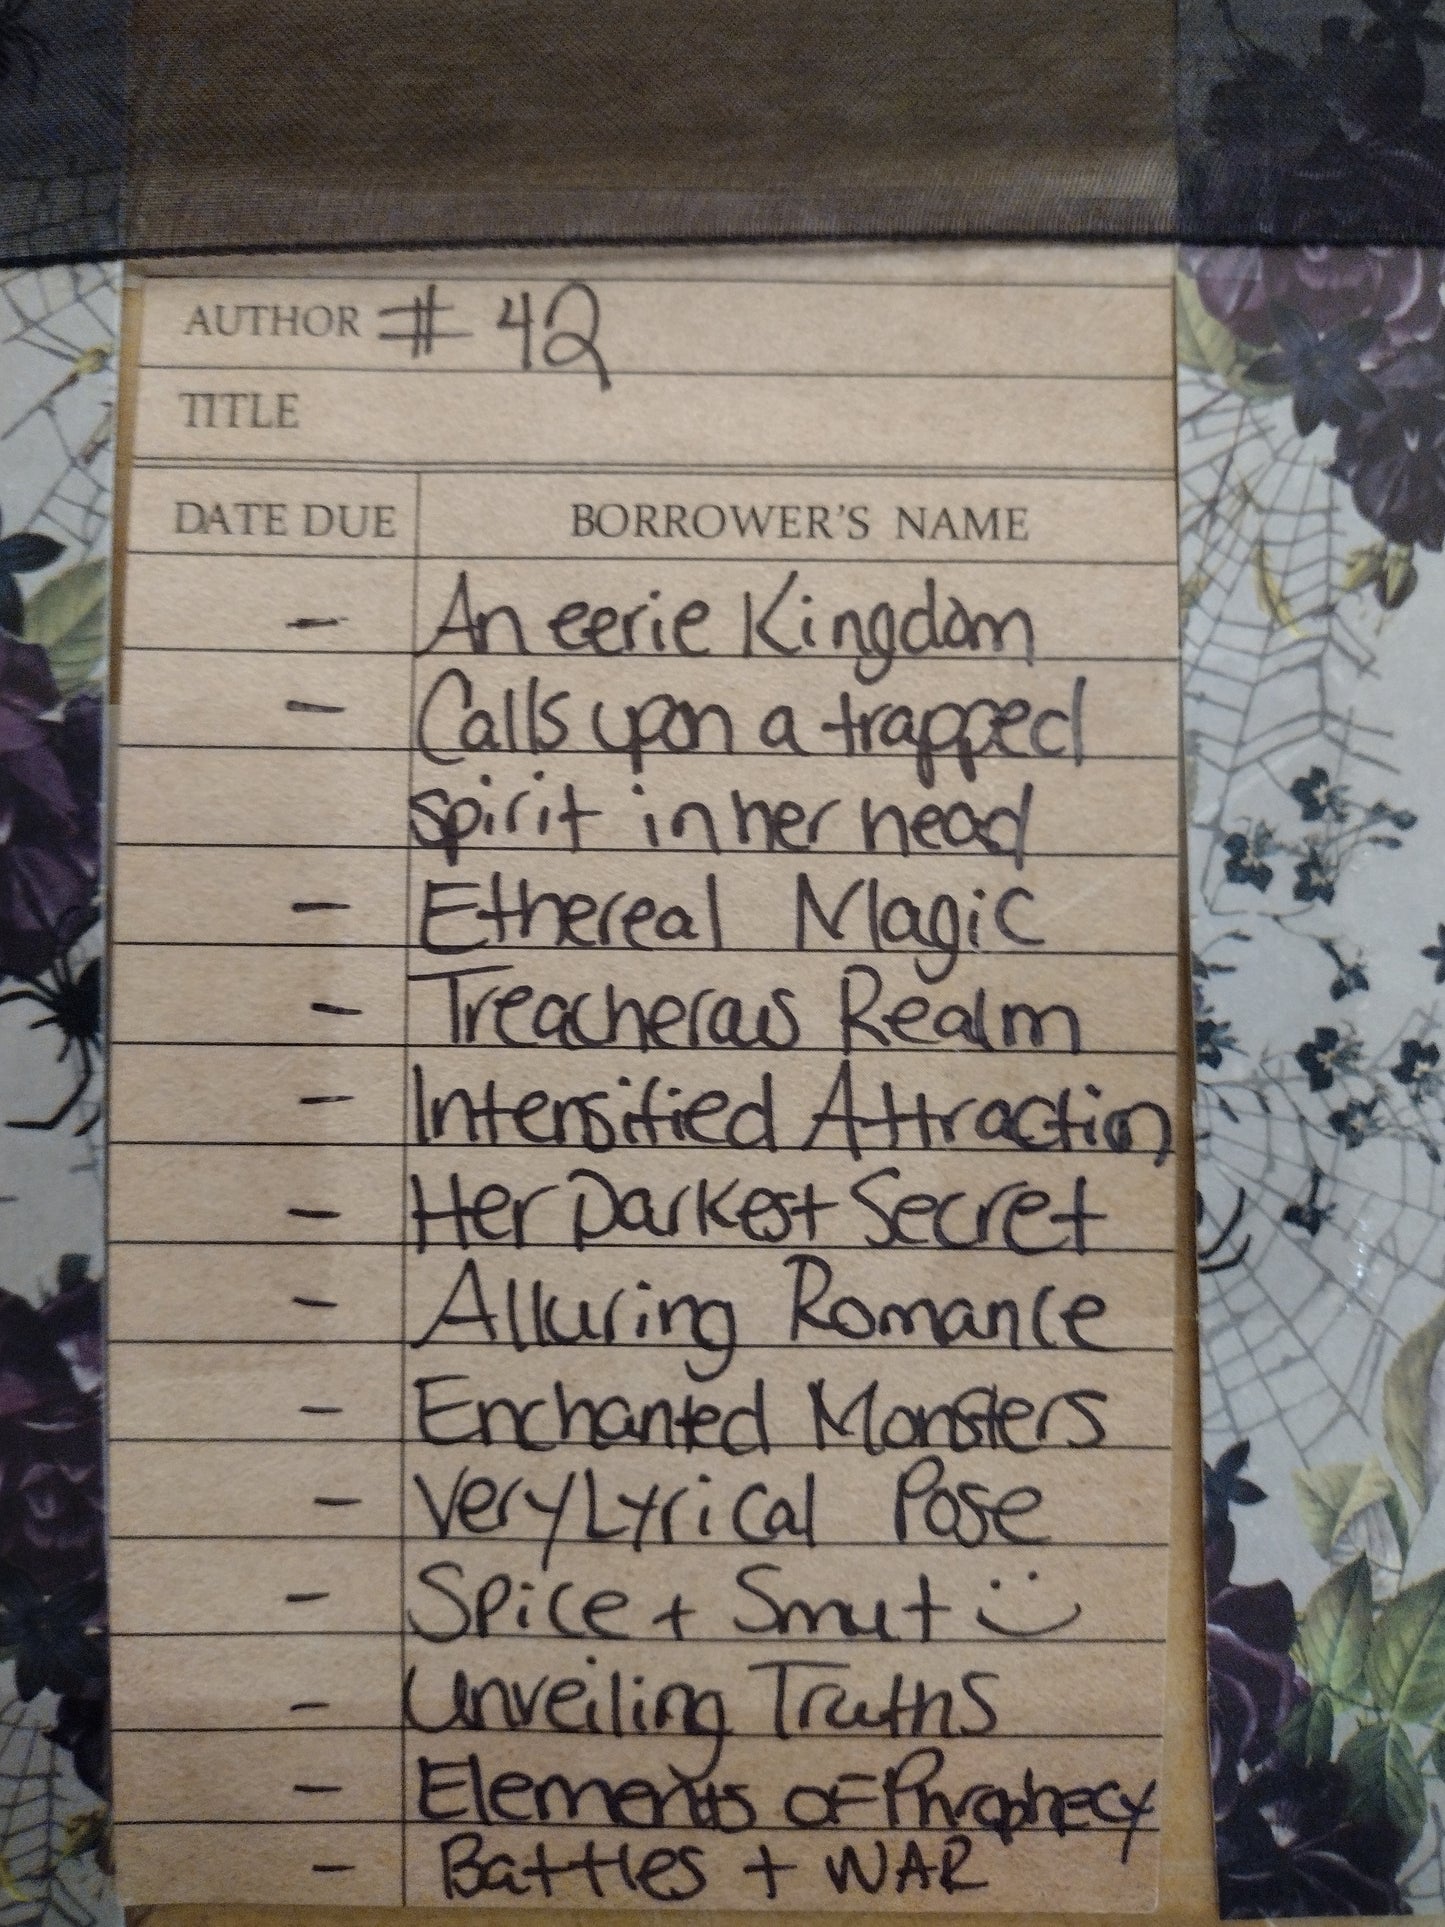 AUTHOR # 42
TITLE
DATE DUE BORROWER'S NAME
- An eerie Kingdom
- Calls upon a trapped
spirit in her head
- Ethereal Magic
- Treacherous Realm
- Intensified Attraction
- Her Darkest Secret
- Alluring Romance
- Enchanted Monsters
- Very Lyrical Pose
- Spice + Smut :)
- Unveiling Truths
- Elements of Phrophecy
- Battles + WAR